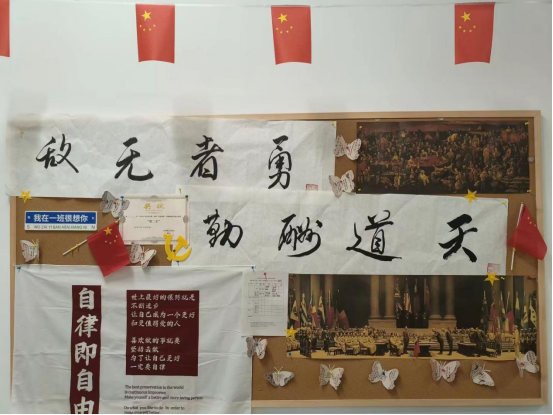 勇者无敌
天道酬勤
我在一班很想你
WO ZAI YI BAN HEN XIANG NI
奖状
自律即自由
世上最好的保养就是
不断进步
让自己成为一个更好
和更值得爱的人
喜欢做的事就要
坚持去做
为了让自己更好
一定要自律
The best preservation in the world
Make yourself a better and more loving person
Do what you like to do. In order to